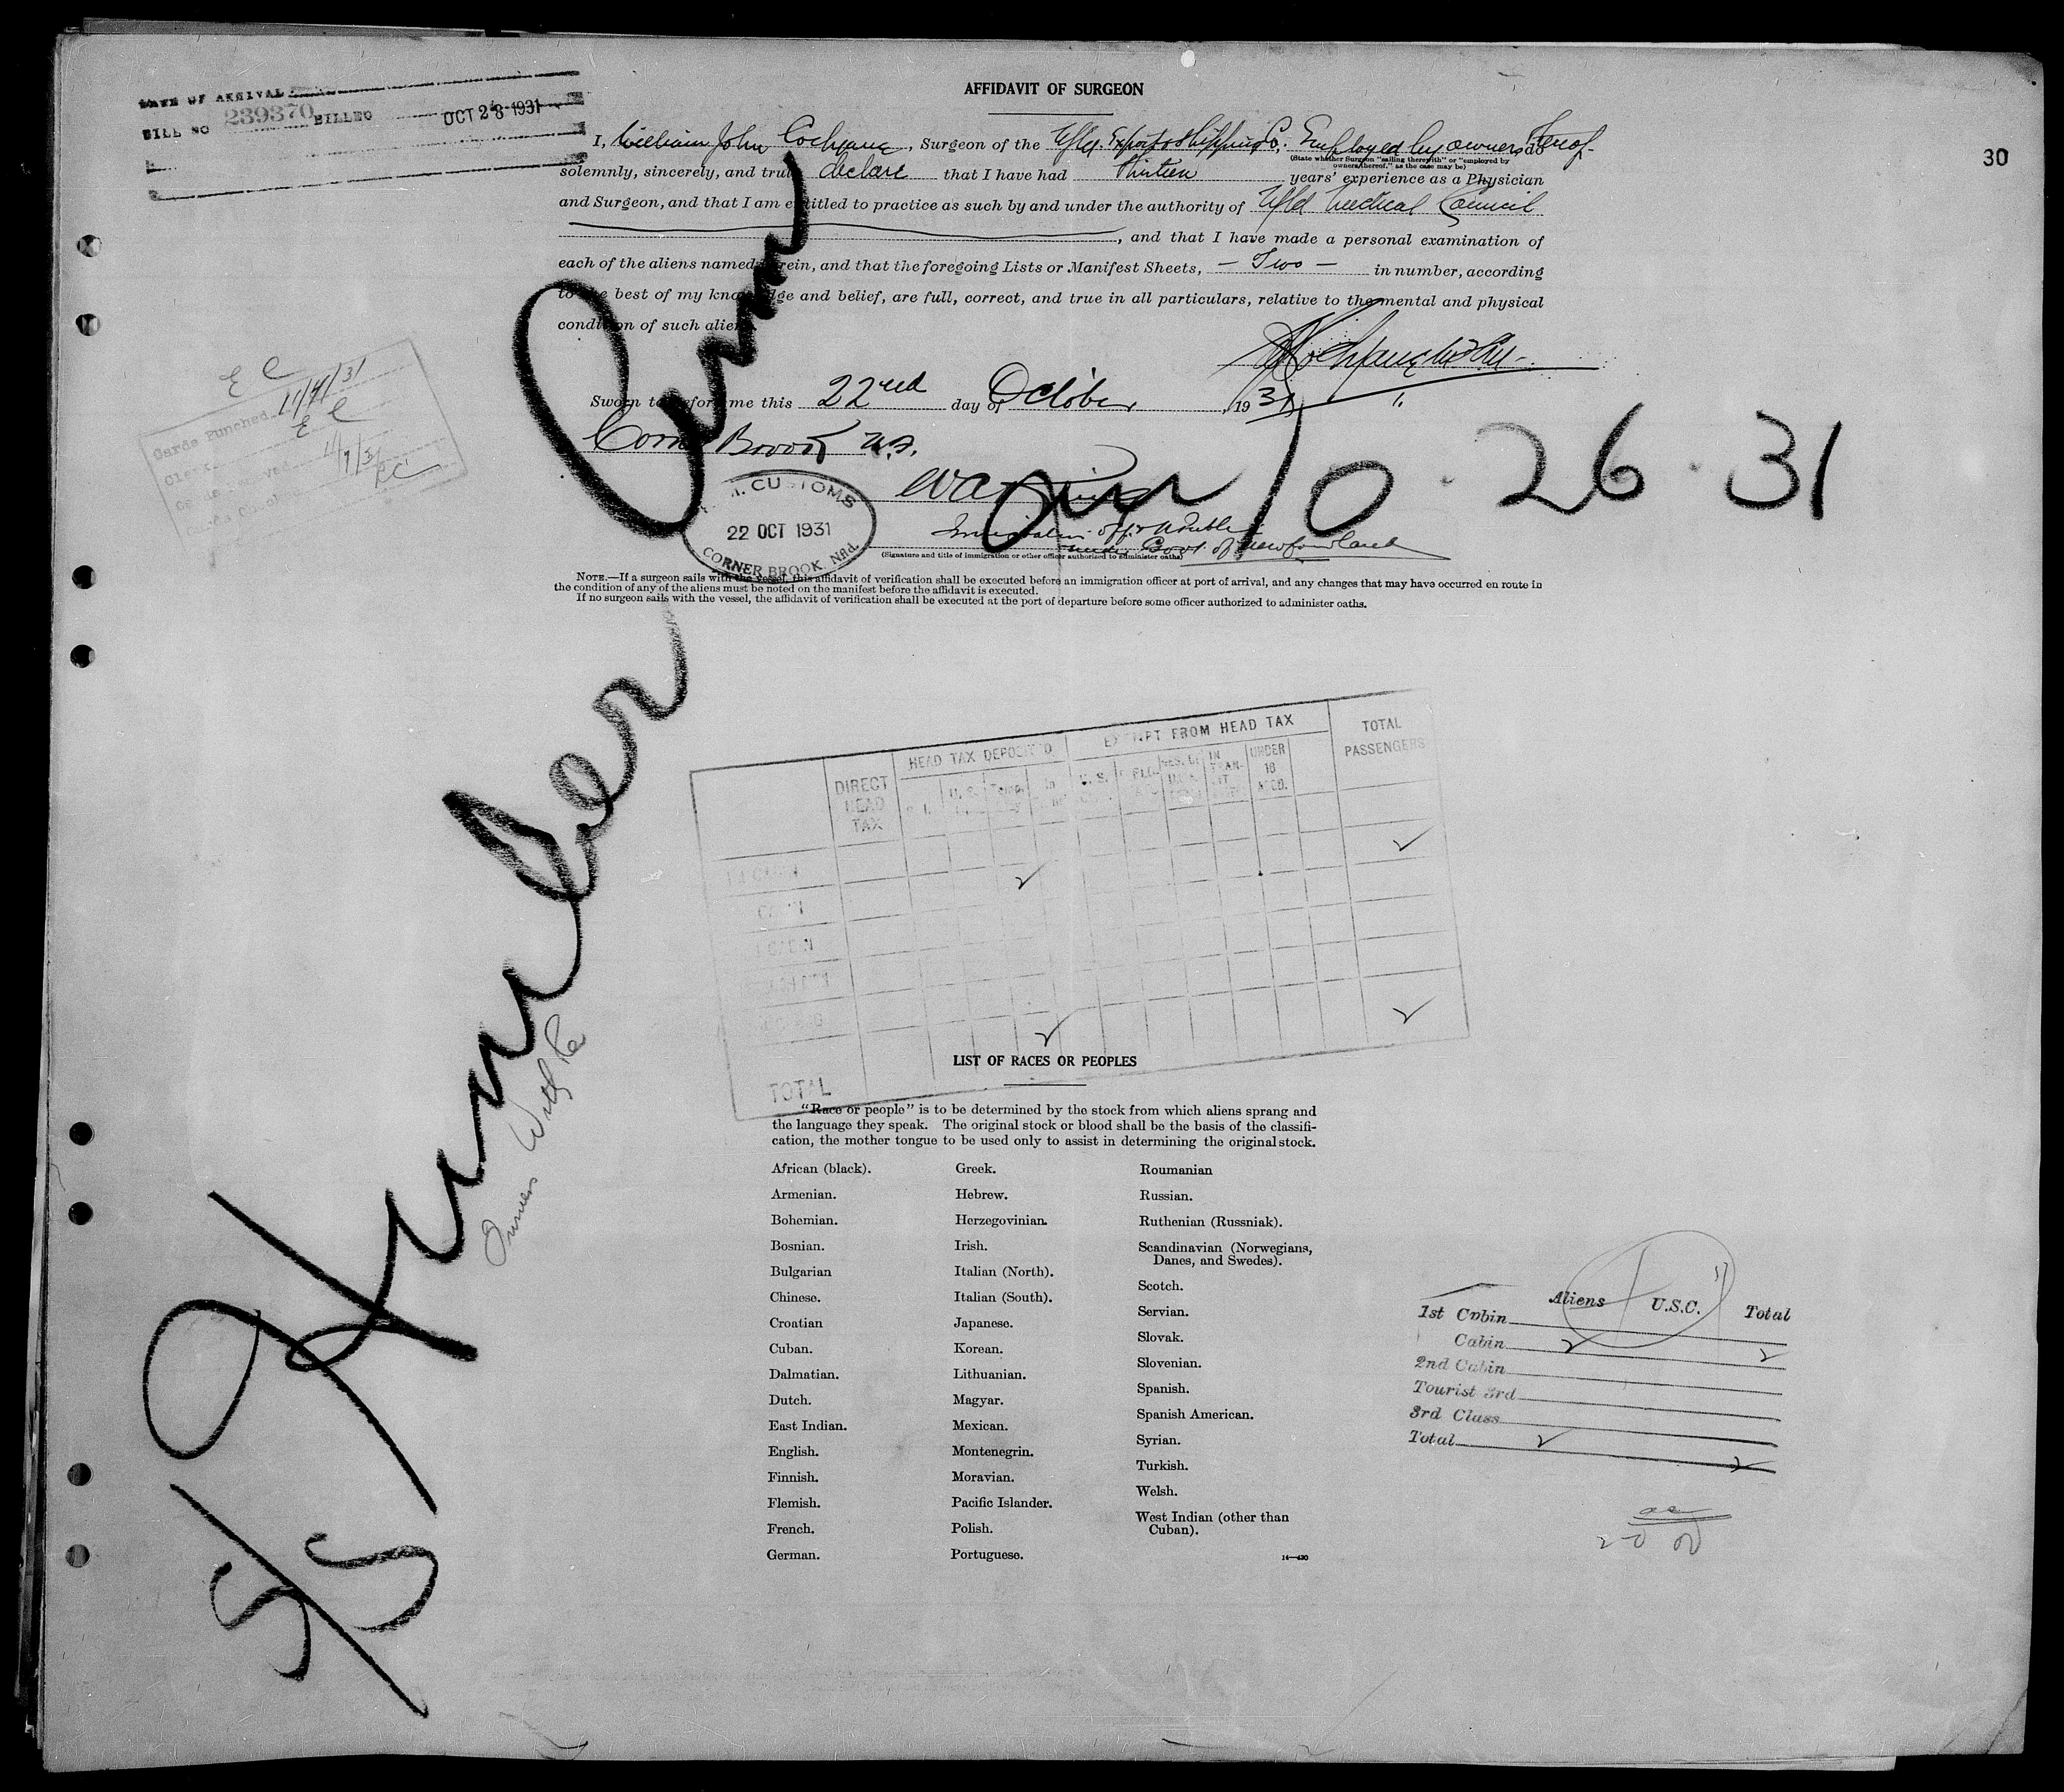 DATE OF ARRIVAL
BILL NO 239370 BILLED OCT 28 1931
30
AFFIDAVIT OF SURGEON
I, William John Cochrane, Surgeon of the Nfld. Export & Shipping Co., Employed by owners thereof do
(State whether Surgeon "sailing therewith" or "employed by owners thereof," as the case may be)
solemnly, sincerely, and truly declare that I have had Thirteen years' experience as a Physician
and Surgeon, and that I am entitled to practice as such by and under the authority of Nfld Medical Council
, and that I have made a personal examination of
each of the aliens named herein, and that the foregoing Lists or Manifest Sheets, – Two – in number, according
to the best of my knowledge and belief, are full, correct, and true in all particulars, relative to the mental and physical
condition of such aliens.
Sworn to before me this 22nd day of October, 1931
Corner Brook N.F.
CUSTOMS
22 OCT 1931
CORNER BROOK Nfld.
under Govt. of Newfoundland
(Signature and title of immigration or other officer authorized to administer oaths)
NOTE.—If a surgeon sails with the vessel, this affidavit of verification shall be executed before an immigration officer at port of arrival, and any changes that may have occurred en route in
the condition of any of the aliens must be noted on the manifest before the affidavit is executed.
If no surgeon sails with the vessel, the affidavit of verification shall be executed at the port of departure before some officer authorized to administer oaths.
E C
Cards Punched 11/9/31
Clerk E C
11/9/31
EC
S/S Humber Arm
arr 10 · 26 · 31
DIRECT HEAD TAX
HEAD TAX DEPOSITED
EXEMPT FROM HEAD TAX
UNDER 16 ACCD.
TOTAL PASSENGERS
2
2
2
2
TOTAL
LIST OF RACES OR PEOPLES
"Race or people" is to be determined by the stock from which aliens sprang and
the language they speak. The original stock or blood shall be the basis of the classifi-
cation, the mother tongue to be used only to assist in determining the original stock.
African (black).
Armenian.
Bohemian.
Bosnian.
Bulgarian
Chinese.
Croatian
Cuban.
Dalmatian.
Dutch.
East Indian.
English.
Finnish.
Flemish.
French.
German.
Greek.
Hebrew.
Herzegovinian.
Irish.
Italian (North).
Italian (South).
Japanese.
Korean.
Lithuanian.
Magyar.
Mexican.
Montenegrin.
Moravian.
Pacific Islander.
Polish.
Portuguese.
Roumanian
Russian.
Ruthenian (Russniak).
Scandinavian (Norwegians,
Danes, and Swedes).
Scotch.
Servian.
Slovak.
Slovenian.
Spanish.
Spanish American.
Syrian.
Turkish.
Welsh.
West Indian (other than
Cuban).
14—430
Aliens U.S.C. Total
1st Cabin
Cabin 2 2
2nd Cabin
Tourist 3rd
3rd Class
Total 2 2